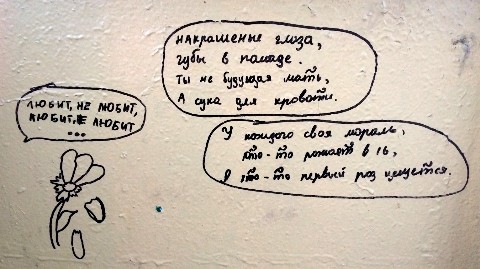 ЛЮБИТ, НЕ ЛЮБИТ,
ЛЮБИТ, НЕ ЛЮБИТ
...
Накрашеные глаза,
Губы в помаде.
Ты не будущая мать,
А сука для кровати.
У каждого своя мораль,
кто-то рожает в 16,
А кто-то первый раз целуется.